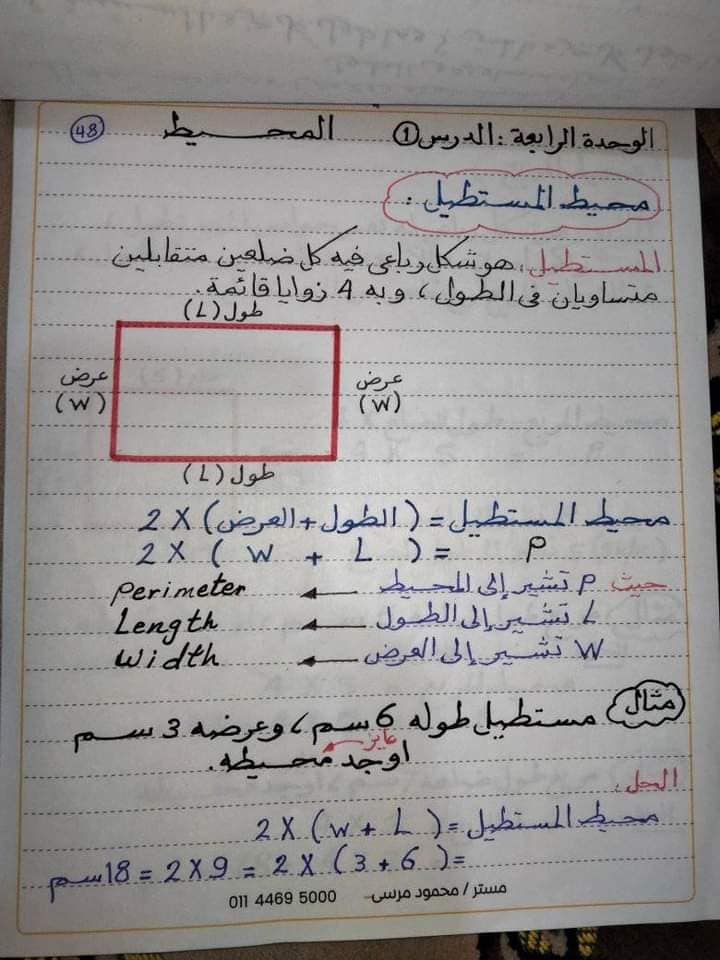 الوحدة الرابعة : الدرس ① المحيط 48
محيط المستطيل :
المستطيل : هو شكل رباعى فيه كل ضلعين متقابلين
متساويان فى الطول ، و به 4 زوايا قائمة.
طول (L)
عرض (W) عرض (W)
طول (L)
محيط المستطيل = (الطول + العرض) × 2
P = ( L + W ) × 2
حيث P تشير إلى المحيط ← Perimeter
L تشير إلى الطول ← Length
W تشير إلى العرض ← Width
مثال مستطيل طوله 6 سم ، وعرضه 3 سم
عايز
اوجد محيطه.
الحل :
محيط المستطيل = ( L + W ) × 2
= ( 6 + 3 ) × 2 = 9 × 2 = 18 سم
مستر / محمود مرسى 011 4469 5000